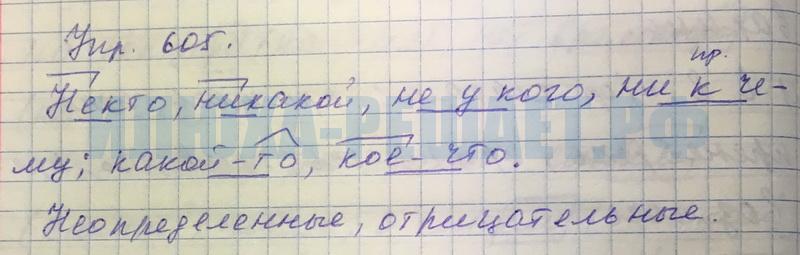 Упр. 605.
пр.
Некто, никакой, не у кого, ни к че-
му; какой-то, кое-что.
Неопределенные, отрицательные.